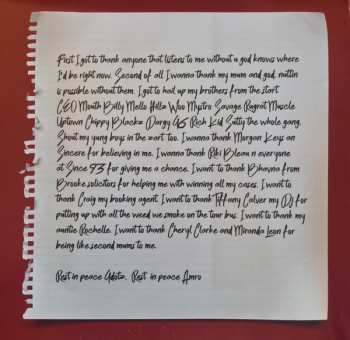 First I got to thank anyone that listens to me without u god knows where
I'd be right now. Second of all I wanna thank my mum and god, nuttin
is possible without them. I got to hail up my brothers from the start
CEO Mouth Billy Mello Hillz Woo Mystro Savage Rogrot Muscle
Uptown Chippy Blackz Dargy AJ5 Rich Kid Sutty the whole gang.
Shout my yung boys in the zart too. I wanna thank Morgan Keys an
Sincere for believing in me. I wanna thank Riki Bleau n everyone
at Since 93 for giving me a chance. I want to thank Bhavna from
Brooke solicitors for helping me with winning all my cases. I want to
thank Craig my booking agent. I want to thank Tiffany Calver my DJ for
putting up with all the weed we smoke on the tour bus. I want to thank my
auntie Rochelle. I want to thank Cheryl Clarke and Miranda Leon for
being like second mums to me.
Rest in peace Adotz. Rest in peace Amro